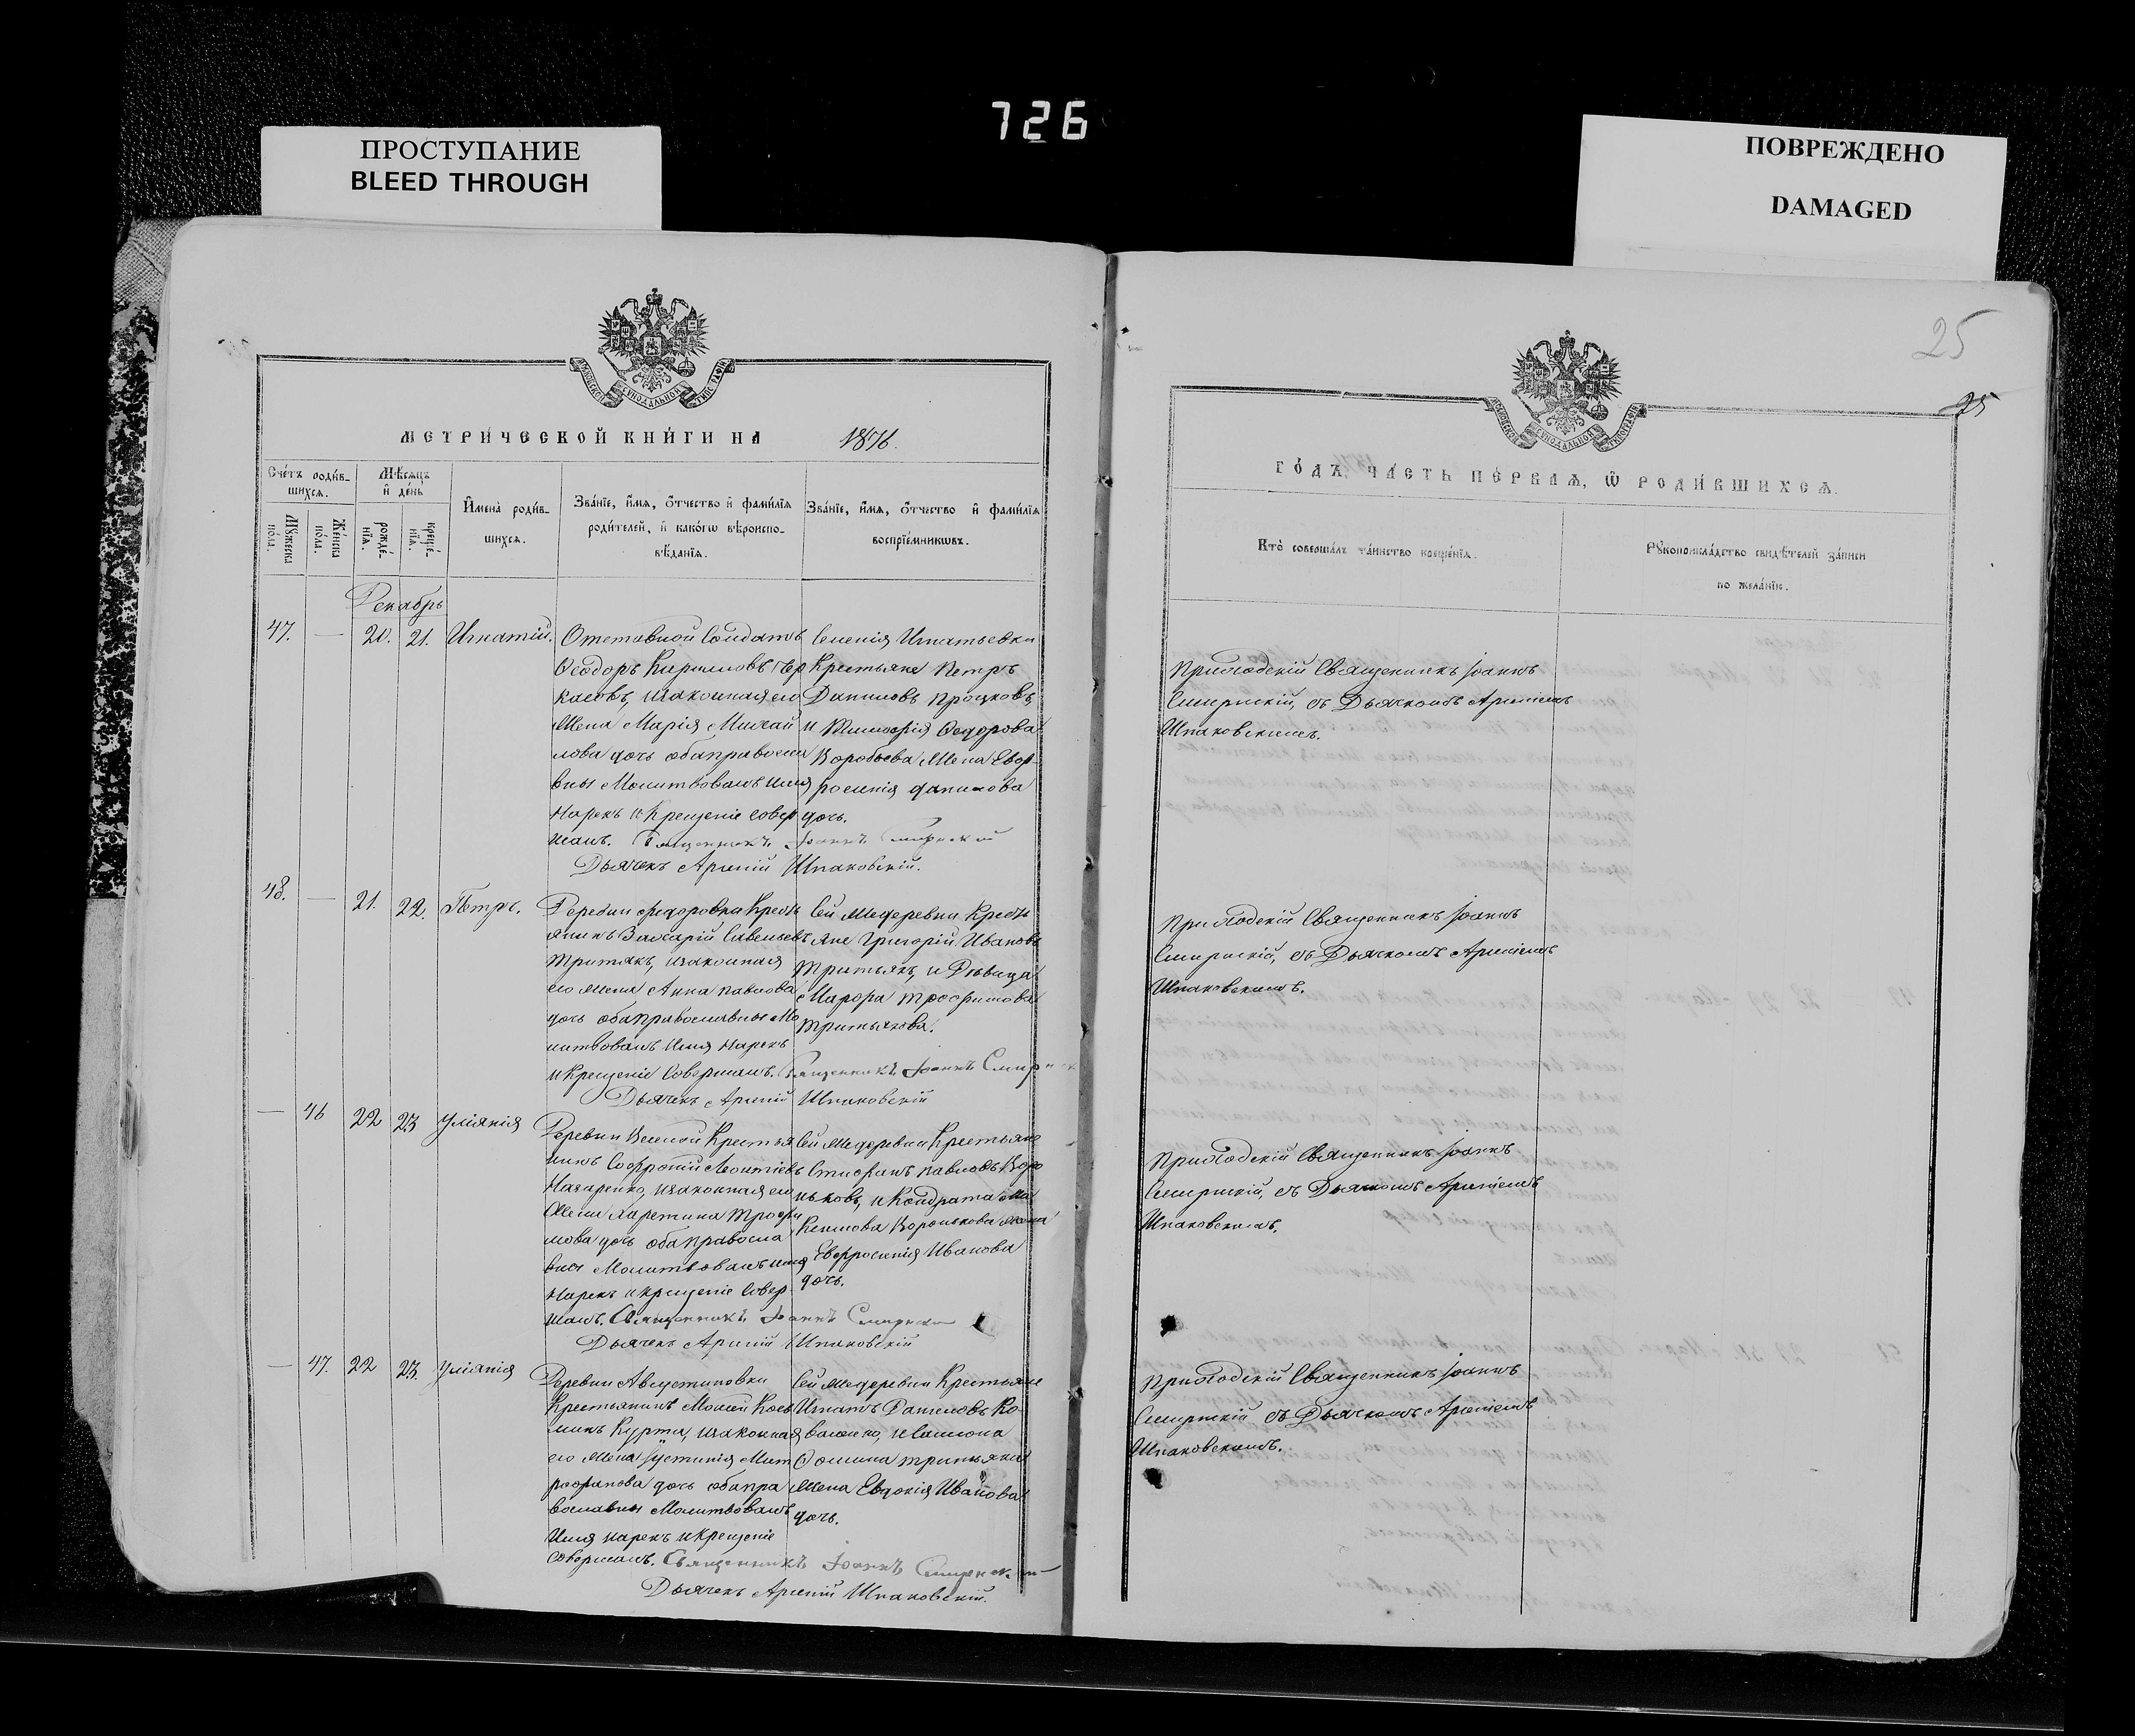 726
ПРОСТУПАНИЕ
BLEED THROUGH
ПОВРЕЖДЕНО
DAMAGED
25
25
МОСКОВСКОЙ СѴНОДАЛЬНОЙ ТИПОГРАФІИ
МЕТРИ́ЧЕСКОЙ КНИ́ГИ НА 1876.
Сче́тъ роди́в-
шихсѧ.
Мꙋ́жеска по́ла.
Же́нска по́ла.
Мѣ́сѧцъ и҆ де́нь
рожде́нїѧ.
креще́нїѧ.
И҆мена̀ роди́в-
шихсѧ.
Зва́нїе, и҆́мѧ, ѻ҆́тчество и҆ фами́лїѧ
роди́телей, и҆ како́гѡ вѣроиспо-
вѣ́данїѧ.
Зва́нїе, и҆́мѧ, ѻ҆́тчество и҆ фами́лїѧ
воспрїе́мникѡвъ.
Декабрь
47. — 20. 21. Игнатій.
Отставной Солдатъ
Ѳеодоръ Кирилловъ Чер
касовъ, изаконная его
Жена Марія Михай
лова дочь оба правосла
вны Молитвовалъ имя
Нарекъ и Крещеніе Совер
шалъ. Священникъ Іоаннъ Смирнскій
Дьячекъ Арсеній Шпаковскій.
Селенія Игнатьевки
Крестьяне Петръ
Даниловъ Процковъ,
и Тимофія Ѳедорова
Воробьева Жена Евф-
росинія данилова
дочь.
48. — 21. 22. Петръ.
Деревни Федоровки Кресть
янинъ Захарій Савельевъ
Третьякъ, изаконная
его жена Анна павлова
дочь оба православные Мо
литвовалъ Имя Нарекъ
и Крещеніе Совершалъ. Священникъ Іоаннъ Смирнск
Дьячекъ Арсеній Шпаковскій
Сей же деревни Кресть
яне Григорій Ивановъ
Третьякъ, и Дѣвица
Трофимова
Третьякова.
— 46 22 23 Уліянія
Деревни Веселой Крестья
нинъ Софроній Леонтіевъ
Назаренко, изаконная его
Жена Харетина Трофи
мова дочь оба Правосла
вны Молитвовалъ имя
Нарекъ и крещеніе Совер
шалъ. Священникъ Іоаннъ Смирнскій
Дьячекъ Арсеній Шпаковскій
Сей же деревни Крестьяне
Стифанъ павловъ Воро
ньковъ, и Кондрата Ма
Воронькова жена
Евфросинія Иванова
дочь.
— 47. 22 23. Уліянія
Деревни Августиновки
Крестьянинъ Мосей Козь
минъ Курта, изаконная
его жена Іустинія Мит
рофанова дочь оба пра
вославны Молитвовалъ
Имя нарекъ и Крещеніе
Совершалъ. Священникъ Іоаннъ Смирнскій
Дьячекъ Арсеній Шпаковскій.
Сей же деревни Крестьяне
Игнатъ Даниловъ Ко
валенко,
Ѳомина третьяка
Жена Евдокія Иванова
дочь.
МОСКОВСКОЙ СѴНОДАЛЬНОЙ ТИПОГРАФІИ
ГО́ДЪ, ЧА́СТЬ ПЕ́РВАѦ, Ѽ РОДИ́ВШИХСѦ.
Кто̀ соверша́лъ та́инство креще́нїѧ.
Рꙋкоприкла́дство свидѣ́телей за́писи
по жела́нїю.
Приходскій Священникъ Іоаннъ
Смирнскій, съ Дьячкомъ Арсеніемъ
Шпаковскимъ.
Приходскій Священникъ Іоаннъ
Смирнскій, съ Дьячкомъ Арсеніемъ
Шпаковскимъ.
Приходскій Священникъ Іоаннъ
Смирнскій, съ Дьячкомъ Арсеніемъ
Шпаковскимъ.
Приходскій Священникъ Іоаннъ
Смирнскій съ Дьячкомъ Арсеніемъ
Шпаковскимъ.